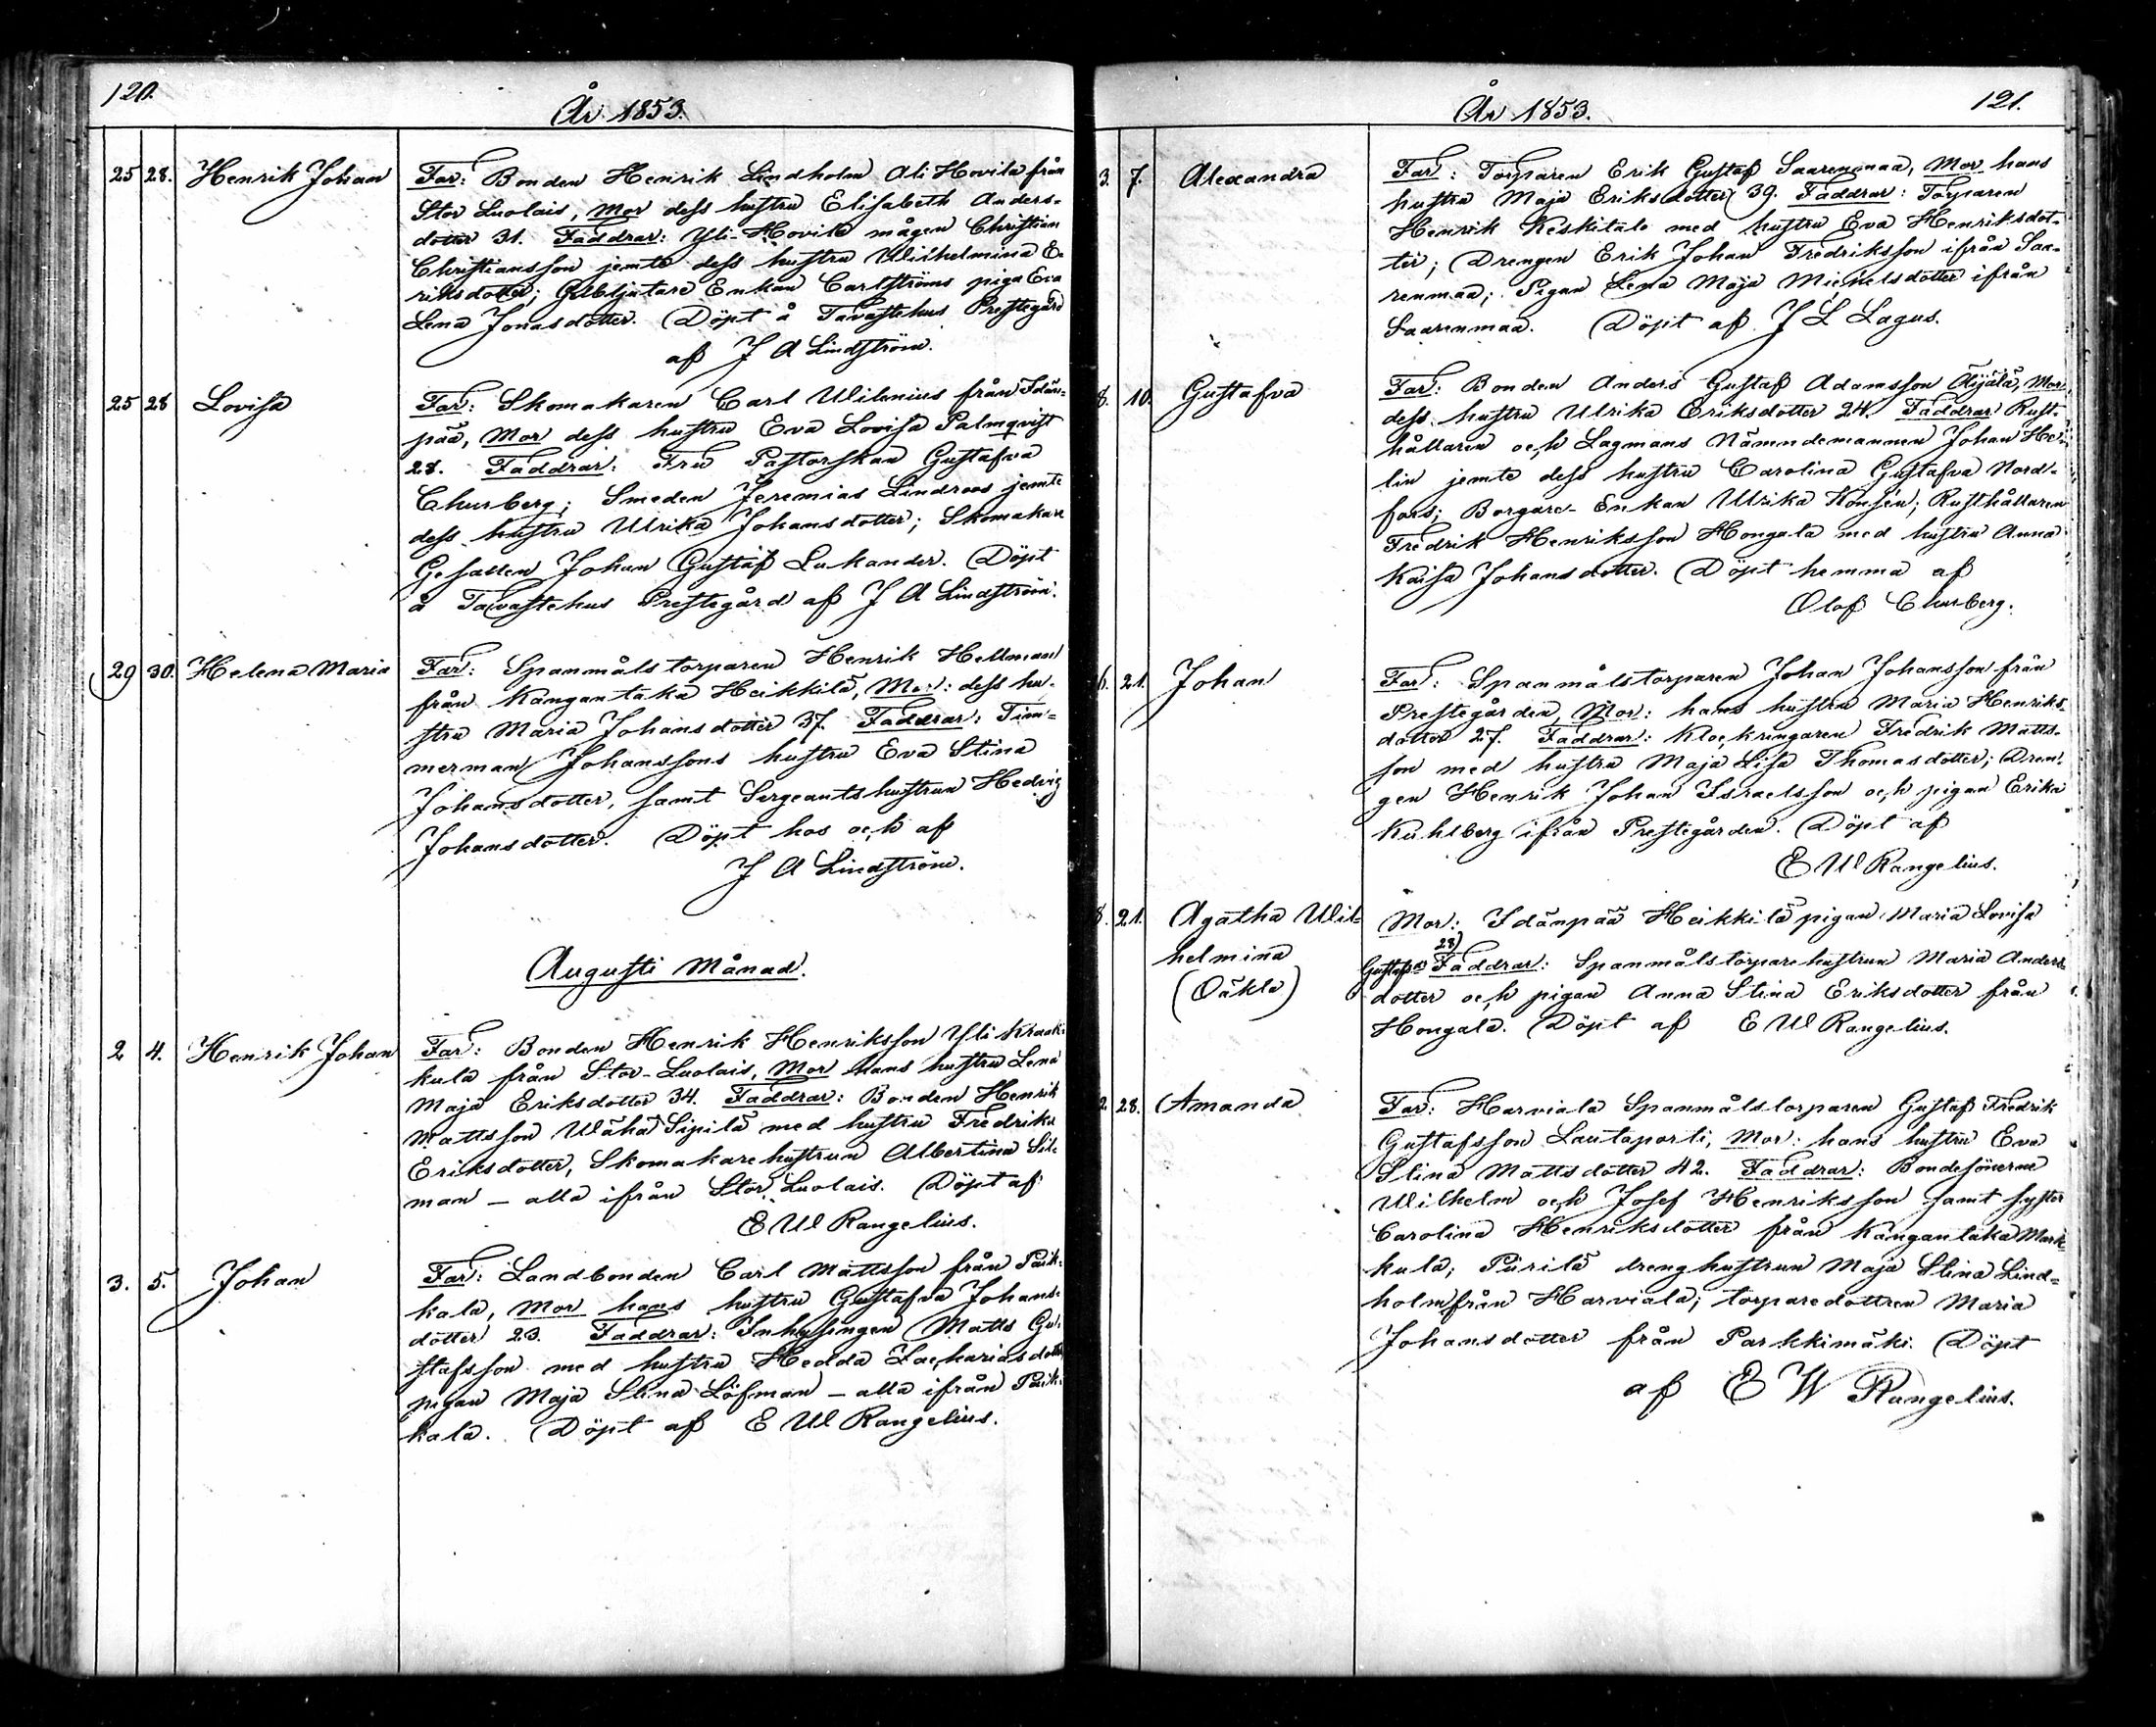 120.
År 1853.
25 28. Henrik Johan Far: Bonden Henrik Lindholm Ali Hovila från
Stor Luolais, Mor dess hustru Elisabeth Anders-
dotter 31. Faddrar: Yli-Hovila mågen Christian
Christiansson jemte dess hustru Wilhelmina E-
riksdotter; Enkan Carlströms piga Eva
Lena Jonasdotter. Döpt å Tavastehus Prestegård
af J A Lindström.
25 28 Lovisa Far: Skomakaren Carl Wilenius från Idän-
pää, Mor dess hustru Eva Lovisa Palmqvist
28. Faddrar: Fru Pastorskan Gustafva
Churberg; Smeden Jeremias Lindroos jemte
dess hustru Ulrika Johansdotter; Skomakare
Gesällen Johan Gustaf Lukander. Döpt
å Tavastehus Prestegård af J A Lindström.
29 30. Helena Maria Far: Spanmålstorparen Henrik Hellman
från Kangantaka Heikkilä, Mor: dess hu-
stru Maria Johansdotter 37. Faddrar: Tim-
merman Johanssons hustru Eva Stina
Johansdotter, samt Sergeantshustrun Hedvig
Johansdotter. Döpt hos och af
J A Lindström.
Augusti Månad.
2 4. Henrik Johan Far: Bonden Henrik Henriksson Yli Kraak-
kula från Stor-Luolais, Mor hans hustru Lena
Maja Eriksdotter 34. Faddrar: Bonden Henrik
Mattsson Wähä Sipilä med hustru Fredrika
Eriksdotter, Skomakarehustrun Albertina Sil-
man – alla ifrån Stor Luolais. Döpt af
E W Rangelius.
3. 5. Johan Far: Landbonden Carl Mattsson från Paik-
kala, Mor hans hustru Gustafva Johans-
dotter 23. Faddrar: Inhysingen Matts Gu-
stafsson med hustru Hedda Zachariasdotter
pigan Maja Stina Löfman – alla ifrån Paik-
kala. Döpt af E W Rangelius.
År 1853.
121.
3. 7. Alexandra Far: Torparen Erik Gustaf Saarenmaa, Mor hans
hustru Maja Eriksdotter 39. Faddrar: Torparen
Henrik Keskitalo med hustru Eva Henriksdot-
ter; Drengen Erik Johan Fredriksson ifrån Saa-
renmaa; Pigan Lena Maja Michelsdotter ifrån
Saarenmaa. Döpt af J L Lagus.
8. 10. Gustafva Far: Bonden Anders Gustaf Adamsson Äijälä, Mor
dess hustru Ulrika Eriksdotter 24. Faddrar: Rust-
hållaren och Lagmans Nämndemannen Johan He-
lin jemte dess hustru Carolina Gustafva Nord-
fors; Borgare-Enkan Ulrika Konsén; Rusthållaren
Fredrik Henriksson Hongala med hustru Anna
Kaisa Johansdotter. Döpt hemma af
Olof Churberg.
6. 21. Johan Far: Spanmålstorparen Johan Johansson från
Prestegården, Mor: hans hustru Maria Henriks-
dotter 27. Faddrar: Klockringaren Fredrik Matts-
son med hustru Maja Lisa Thomasdotter; Dren-
gen Henrik Johan Israelsson och pigan Erika
Kuhlberg ifrån Prestegården. Döpt af
E W Rangelius.
8. 21. Agatha Wil- Mor: Idänpää Heikkilä pigan Maria Lovisa
helmina Gustafsd. 28) Faddrar: Spanmålstorparehustrun Maria Anders-
(Oäkta) dotter och pigan Anna Stina Eriksdotter från
Hongala. Döpt af E W Rangelius.
2. 28. Amanda Far: Harviala Spanmålstorparen Gustaf Fredrik
Gustafsson Lautaporti, Mor: hans hustru Eva
Stina Mattsdotter 42. Faddrar: Bondesönerne
Wilhelm och Josef Henriksson samt syster
Carolina Henriksdotter från Kangantaka Mark-
kula; Püirilä drenghustrun Maja Stina Lind-
holm från Harviala; torparedottren Maria
Johansdotter från Parkkimäki. Döpt
af E W Rangelius.